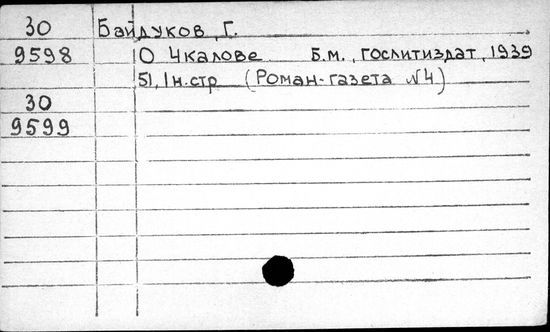 30 Байдуков, Г.
9598 О Чкалове Б.м., Гослитиздат, 1939
51, 1 н.стр (Роман-газета №4)
30
9599